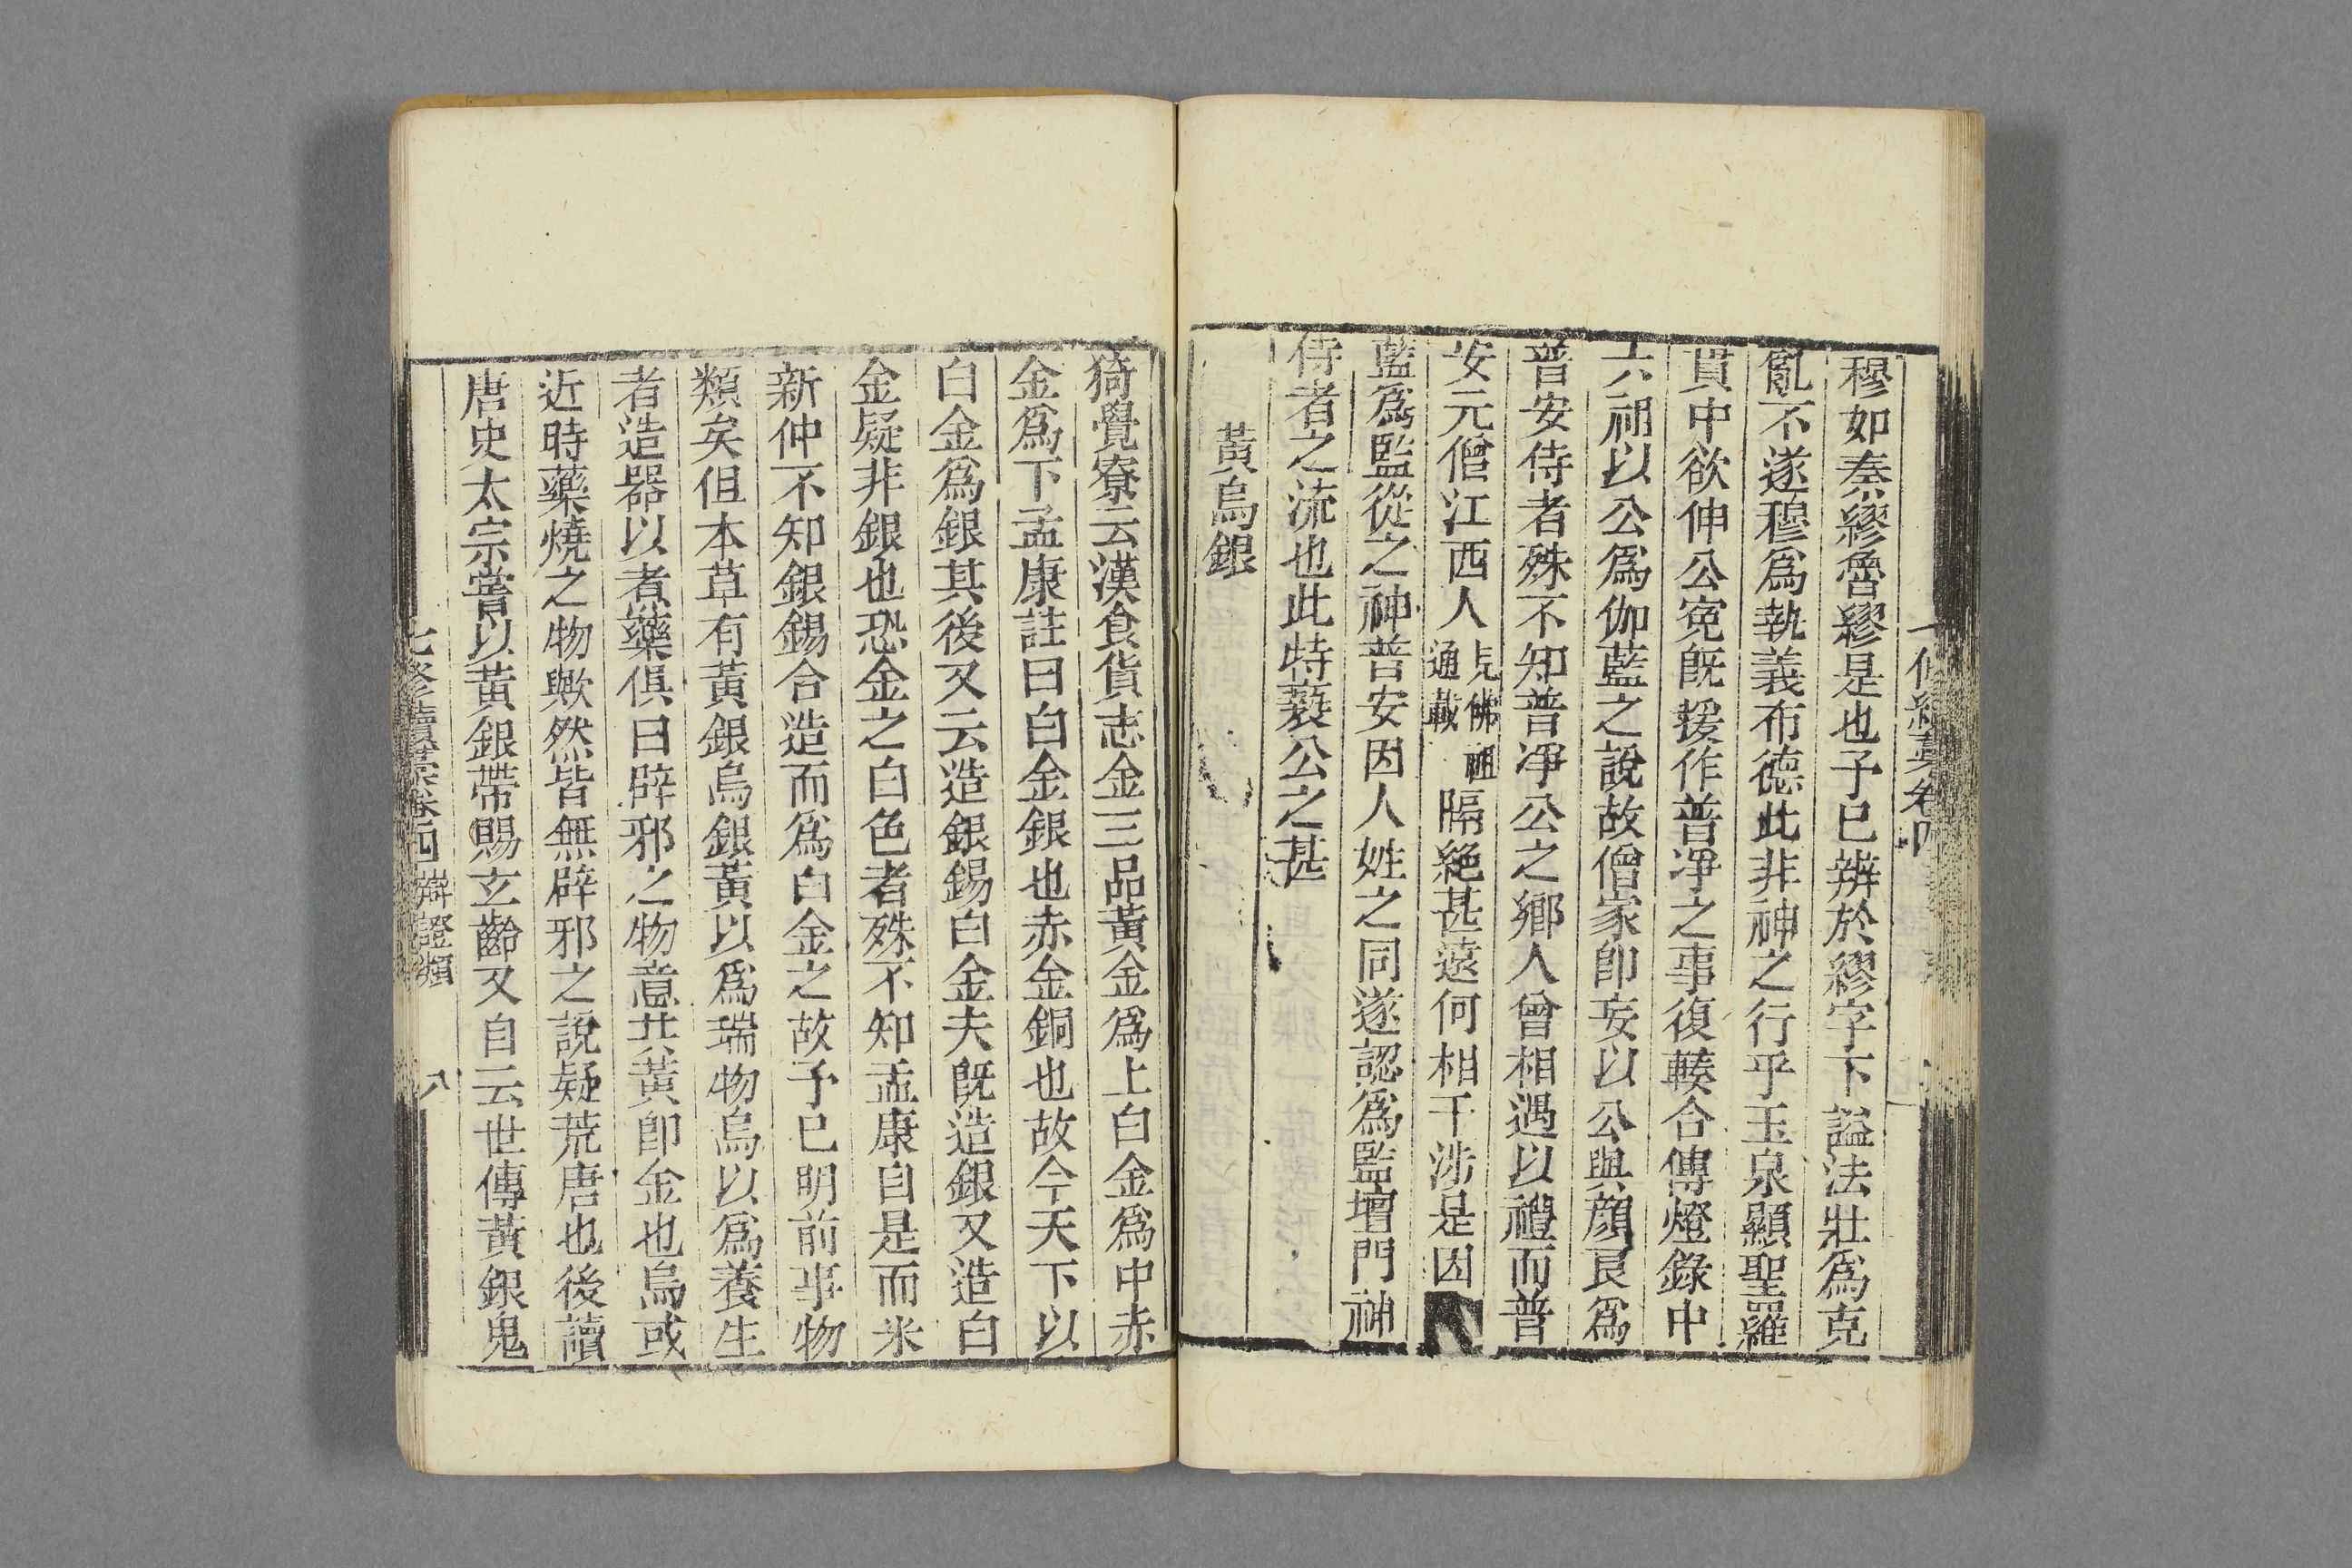 穆如秦繆魯繆是也予已辨於繆字下謚法壯爲克
亂不遂穆爲執義布德此非神之行乎玉泉顯聖羅
貫中欲伸公寃旣援作普凈之事復輳合傳燈錄中
六祖以公爲伽藍之說故僧家卽妄以公與顔良爲
普安侍者殊不知普凈公之鄉人曾相遇以禮而普
安元僧江西人見佛祖通載隔絶甚遠何相干涉是因
藍爲監從之神普安因人姓之同遂認爲監壇門神
侍者之流也此特䙝公之甚
黃烏銀
猗覺寮云漢食貨志金三品黃金爲上白金爲中赤
金爲下孟康註曰白金銀也赤金銅也故今天下以
白金爲銀其後又云造銀錫白金夫旣造銀又造白
金疑非銀也恐金之白色者殊不知孟康自是而米
新仲不知銀錫合造而爲白金之故予已明前事物
類矣但本草有黃銀烏銀黃以爲瑞物烏以爲養生
者造器以者藥俱曰辟邪之物意其黃卽金也烏或
近時藥燒之物歟然皆無辟邪之說疑荒唐也後讀
唐史太宗嘗以黃銀帶賜玄齡又自云世傳黃銀鬼
七修續藁卷四 辯證類 八